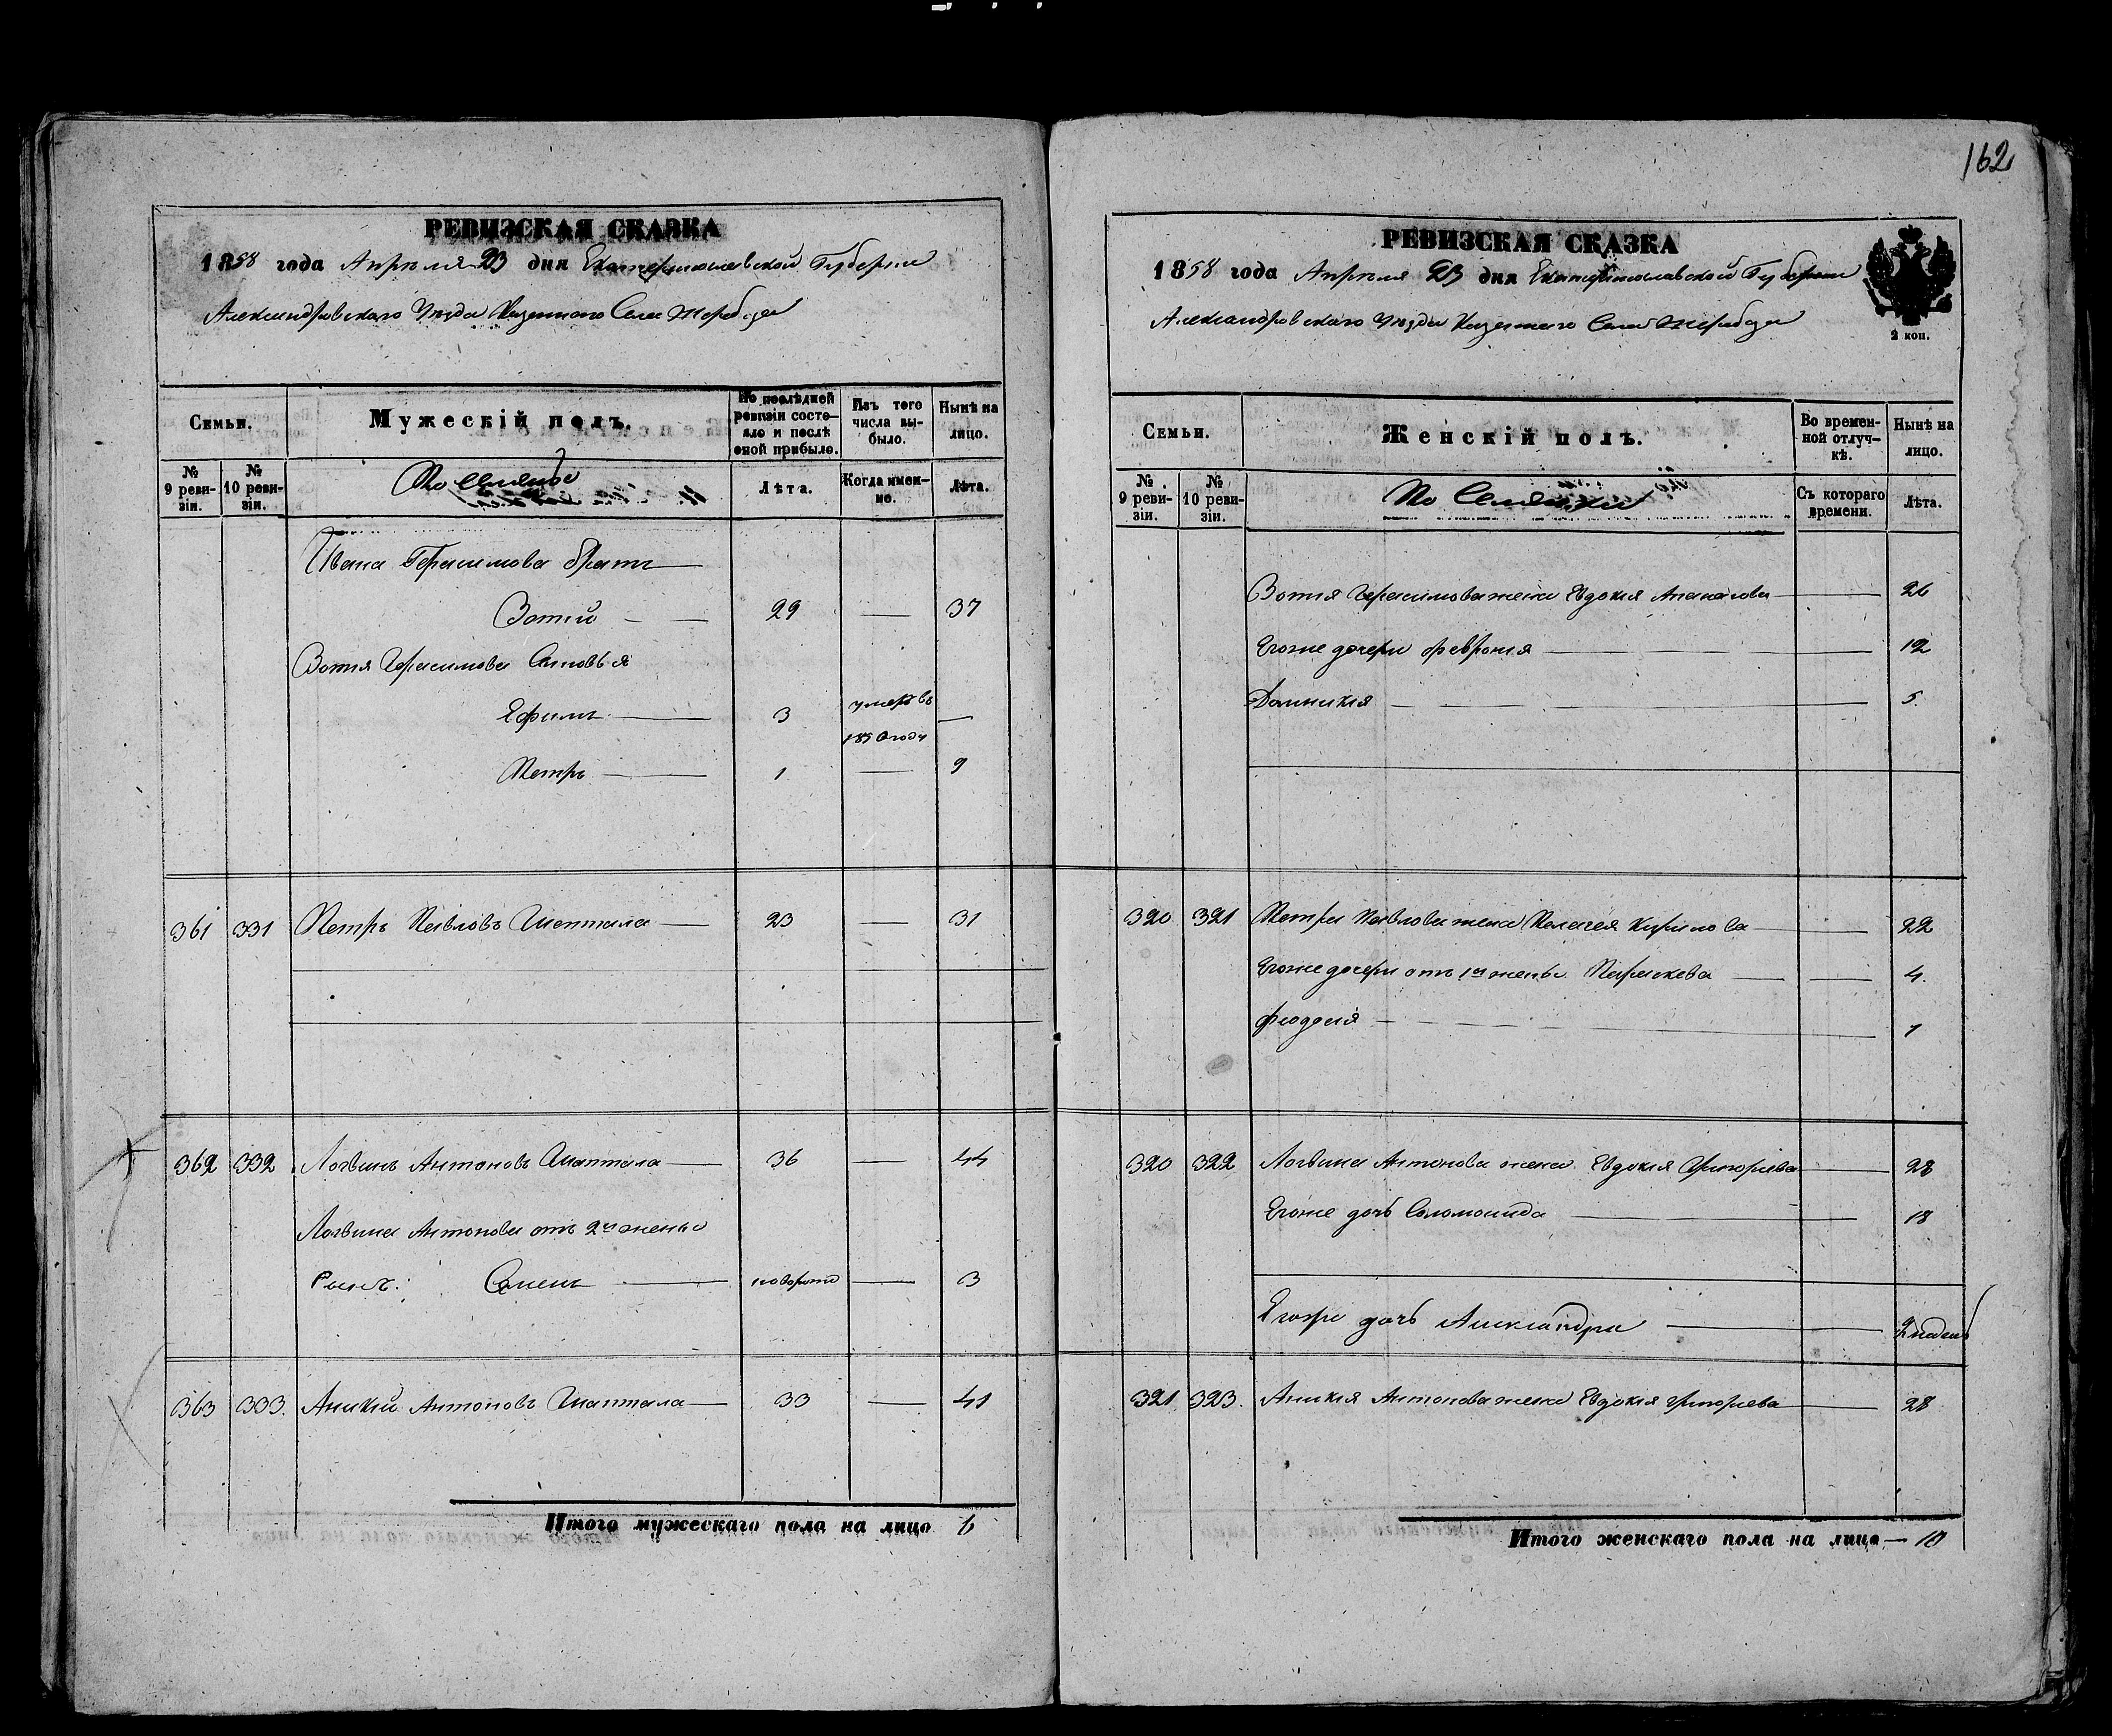 162
РЕВИЗСКАЯ СКАЗКА
1858 года Апреля 23 дня Екатеринославской Губернии
Александровскаго Уезда Казеннаго Села Жеребца
Семьи.
Мужескій полъ.
По послѣдней ревизіи состояло и послѣ оной прибыло.
Изъ того числа выбыло.
Нынѣ на лицо.
№ 9 ревизіи.
№ 10 ревизіи.
Лѣта.
Когда именно.
Лѣта.
Ивана Герасимова братъ
Зотій 29 — 37
Зотія Герасимова Сыновья
Ефимъ 3 умеръ въ 1850 году —
Петръ 1 — 9
361 331 Петръ Павловъ Шаптала 23 — 31
362 332 Логвинъ Антоновъ Шаптала 36 — 44
Логвина Антонова отъ 2й жены
сынъ: Семенъ — 3
363 333. Аникій Антоновъ Шаптала 33 — 41
Итого мужескаго пола на лицо 6
РЕВИЗСКАЯ СКАЗКА
1858 года Апреля 23 дня Екатеринославской Губернии
Александровскаго Уезда Казеннаго Села Жеребца
2 коп.
Семьи.
Женскій полъ.
Во временной отлучкѣ.
Нынѣ на лицо.
№ 9 ревизіи.
№ 10 ревизіи.
Съ котораго времени.
Лѣта.
Зотія Герасимова жена Евдокия — 26
Егоже дочери Феврония — 12
Домникия — 5.
320 321 Петра Павлова жена Пелагея Кирилова — 22
Егоже дочери отъ 1й жены Параскева — 4.
Феодосия 1
320 322 Логвина Антонова жена Евдокия Григориева — 28
Егоже дочь Соломонида — 18
Егоже дочь Александра —
321 323. Аникия Антонова жена Евдокия Григориева — 28
Итого женскаго пола на лицо — 10